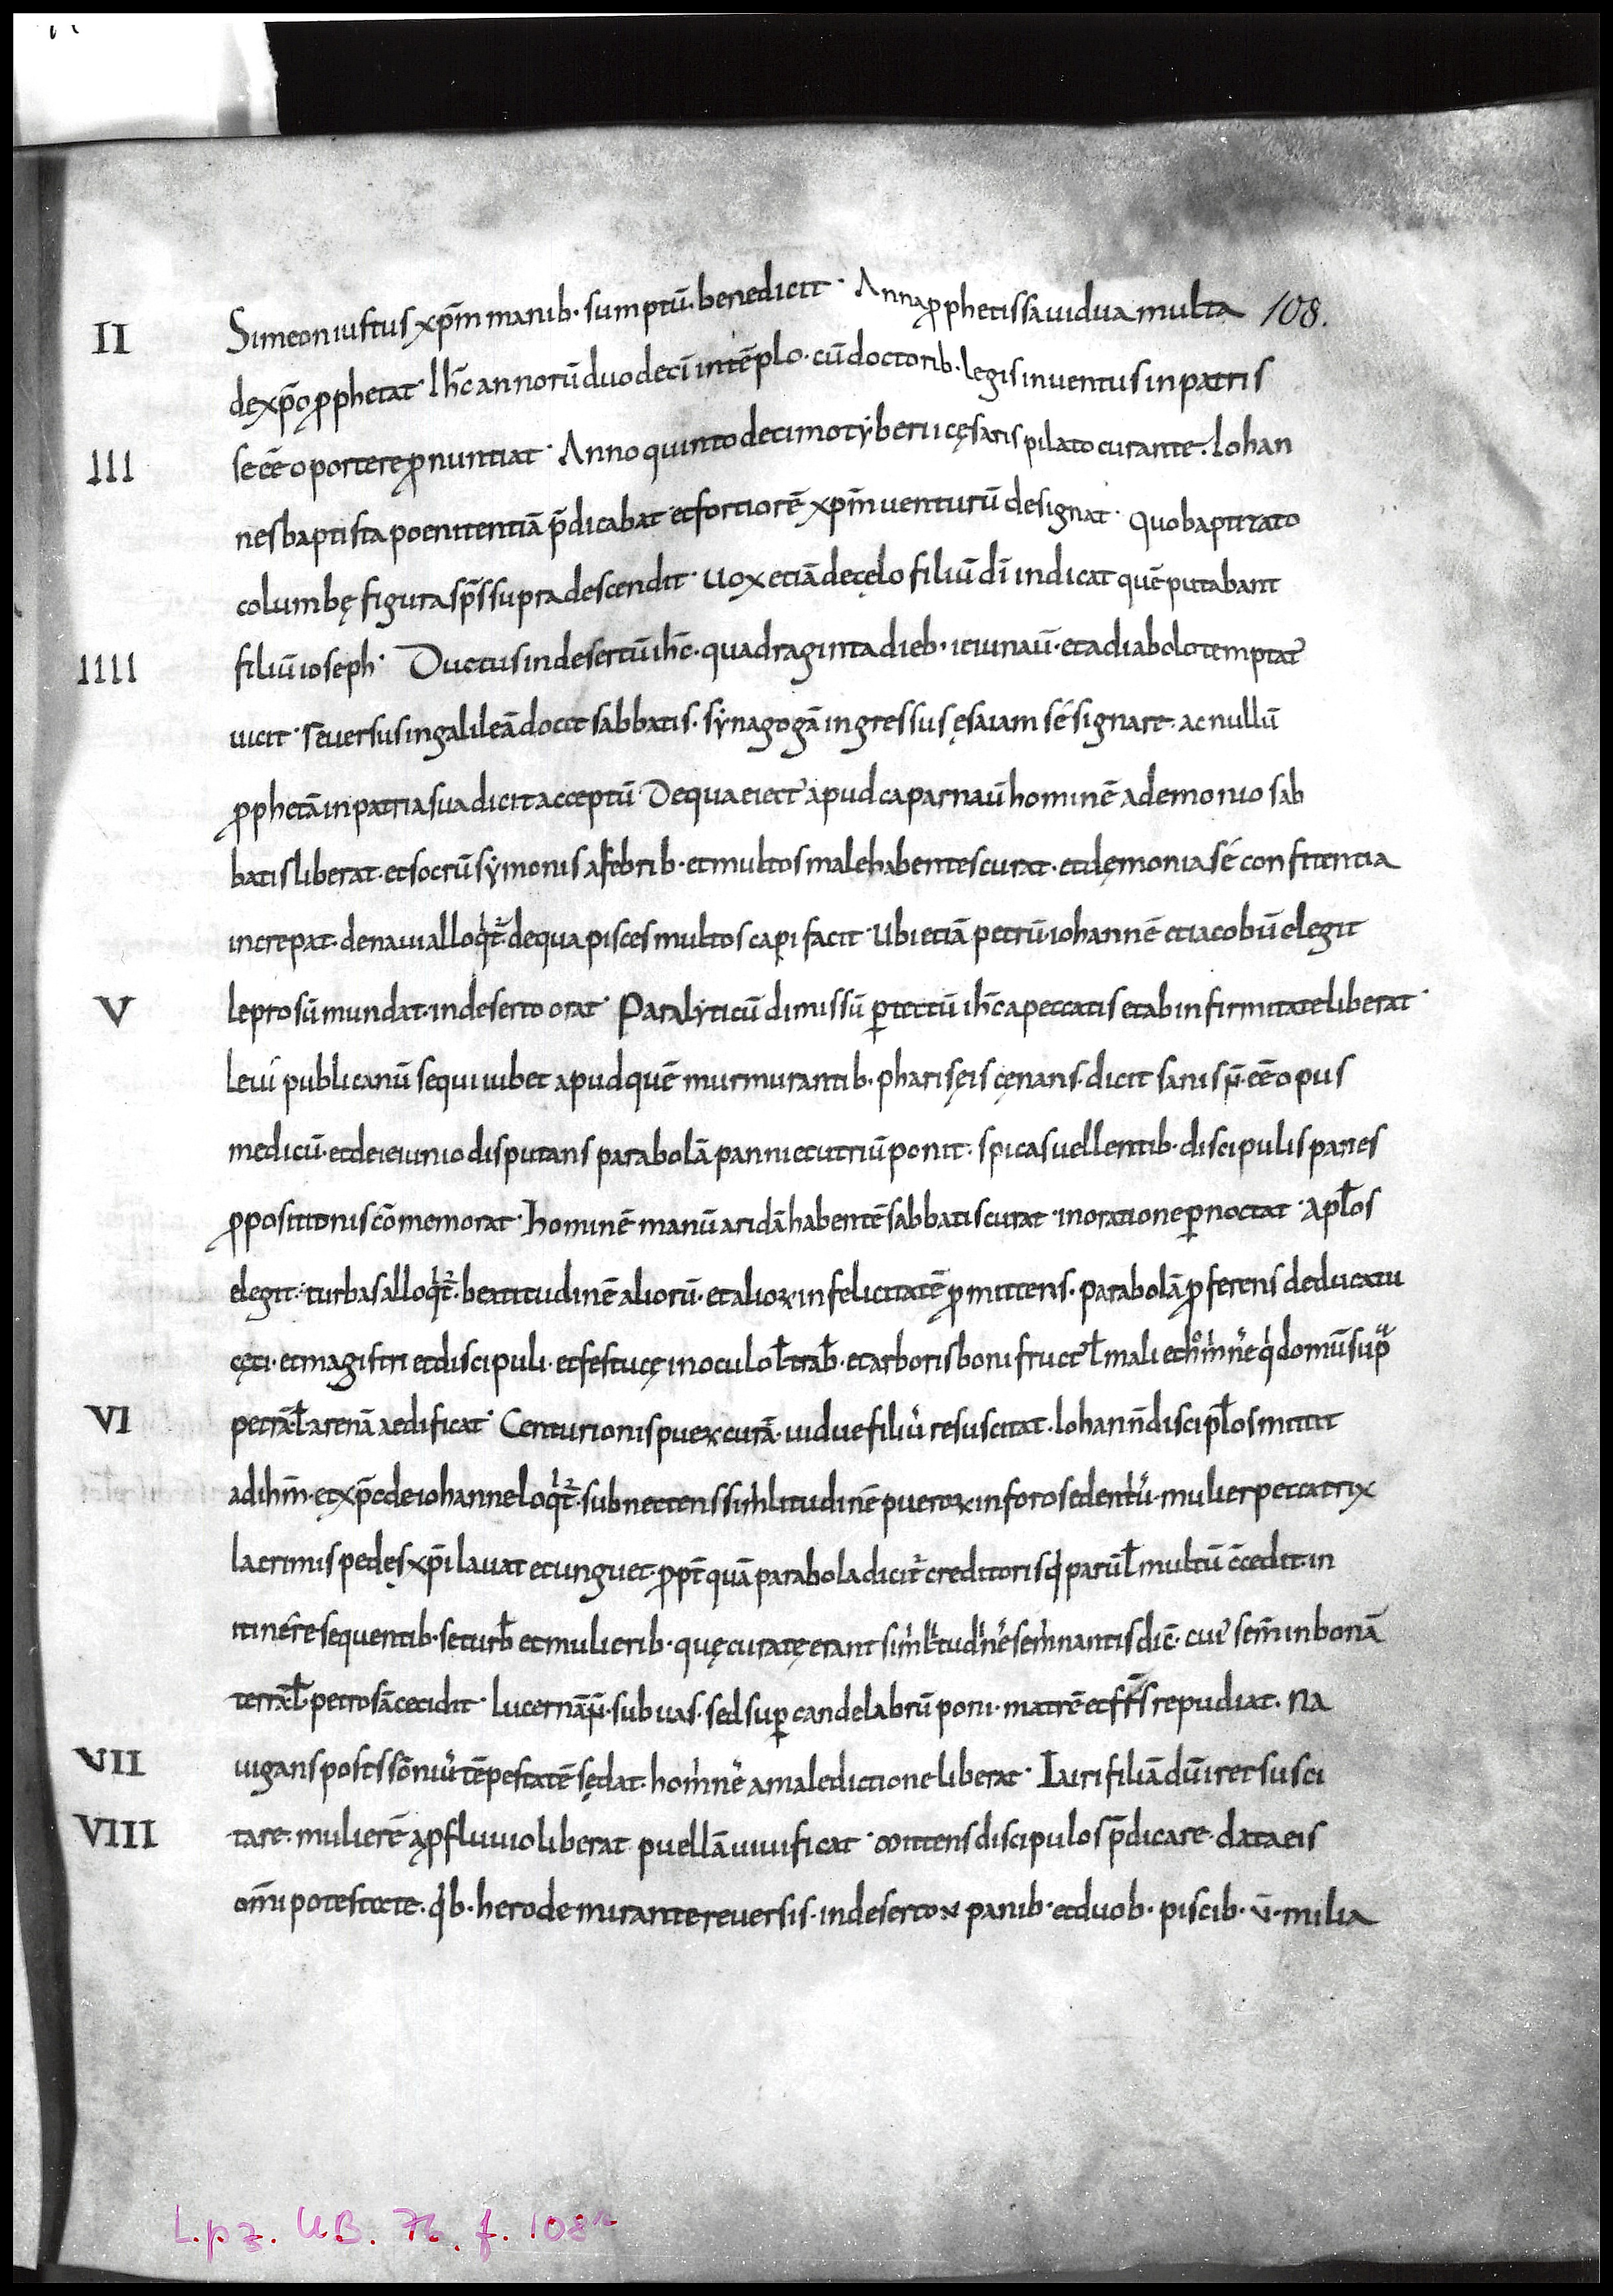 II Simeon iustus xp̄m manib· sumptū· benedicit· Anna ꝓphetissa uidua multa 108.
de xp̄o ꝓphetat· Ihc̄ annorū duodeci intēplo· cū doctorib· legis inuentus in patris
III se eē oportere ꝓnuntiat· Anno quinto decimo tyberii cęsaris pilato curante· Iohan
nes baptista poenitentiā p̄dicabat et fortiorē xp̄m uenturū designat· quo baptizato
columbę figura sp̄s supra descendit· uox etiā de cęlo filiū dī indicat quē putabant
IIII filiū ioseph· Ductus in desertū ihc̄· quadraginta dieb· ieiunauͥ· et a diabolo temptat᷒
uicit· reuersus in galileā docet sabbatis· synagogā ingressus ęsaiam sé signare· ac nullū
ꝓphetā in patria sua dicit acceptū De qua eiect᷒ apud caparnaū hominē a demonio sab
batis liberat· et socrū symonis a febrib· et multos male habentes curat· et dęmonia sé confitentia
increpat· de naui alloqͥt᷒· de qua pisces multos capi facit· Ubi etiā petrū· iohannē et iacobū elegit
V leprosū mundat· in deserto orat· Paralyticū dimissū ꝑ tectū ihc̄ a peccatis et ab infirmitate liberat·
Leui publicanū sequi iubet apud quē murmurantib· pharisęis cęnans· dicit sanis n̄· eē opus
medicū· et de ieiunio disputans parabolā panni et utriū ponit· spicas uellentib· discipulis panes
ꝓpositionis cōmemorat· hominē manū aridā habentē sabbatis curat· in oratione ꝑnoctat· Apl̄os
elegit· turbas alloqͥt᷒· beatitudinē aliorū· et alioꝝ infelicitatē ꝓmittens· parabolā ꝓferens de ducatu
cęci· et magistri et discipuli· et festucę in oculo ł trab̄· et arboris boni fruct᷒ ł mali et hoͦmͥnē qͥ domū supͣ
VI petrā ł arenā aedificat· Centurionis pueꝝ curā· uidue filiū resuscitat· Iohann̄ discipl̄os mittit
ad ihm̄· et xp̄c de iohanne loqͥt᷒· subnectens simͥlitudinē pueroꝝ in foro sedentiū· mulier peccatrix
lacrimis pedęs xp̄i lauat et unguet· ꝓpt̄ quā parabola dicit᷒ creditoris qͥ paruł multū c̄cedit· in
itinere sequentib· se turb̄ et mulierib· quę curatę erant simͥlͥtudͥnē semͥnantis dic̄· cui᷒ sem̄ in bonā
terrā ł petrosā cecidit· lucernā n̄· sub uas· sed suꝑ candelabrū poni· matrē et fr̄s repudiat· Na
VII uigans post ssōniū tēpestatē sędat· homͥnē a maledictione liberat· Iairi filiā dū iret susci
VIII tare· mulierē a ꝓfluuio liberat puellā uiuificat· Mittens discipulos p̄dicare· data eis
om̄i potestate· qͥb· herode mirante reuersis· in deserto v panib· et duob· piscib· v̄· milia
L.pz. UB. 76, f. 108r